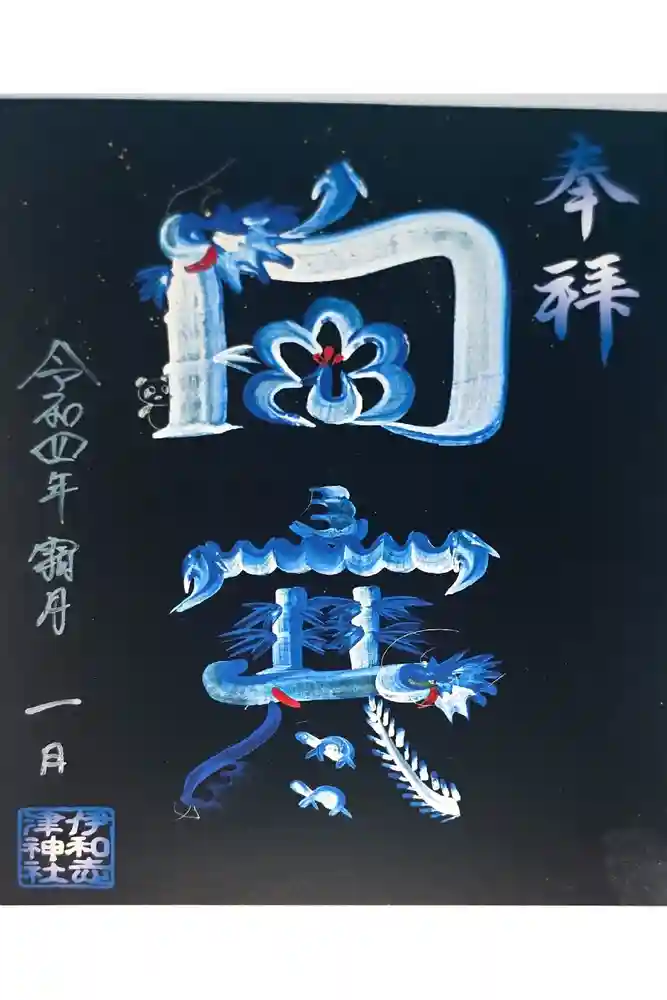 奉拝
向寒
令和四年 霜月 一日
伊和志
津神社